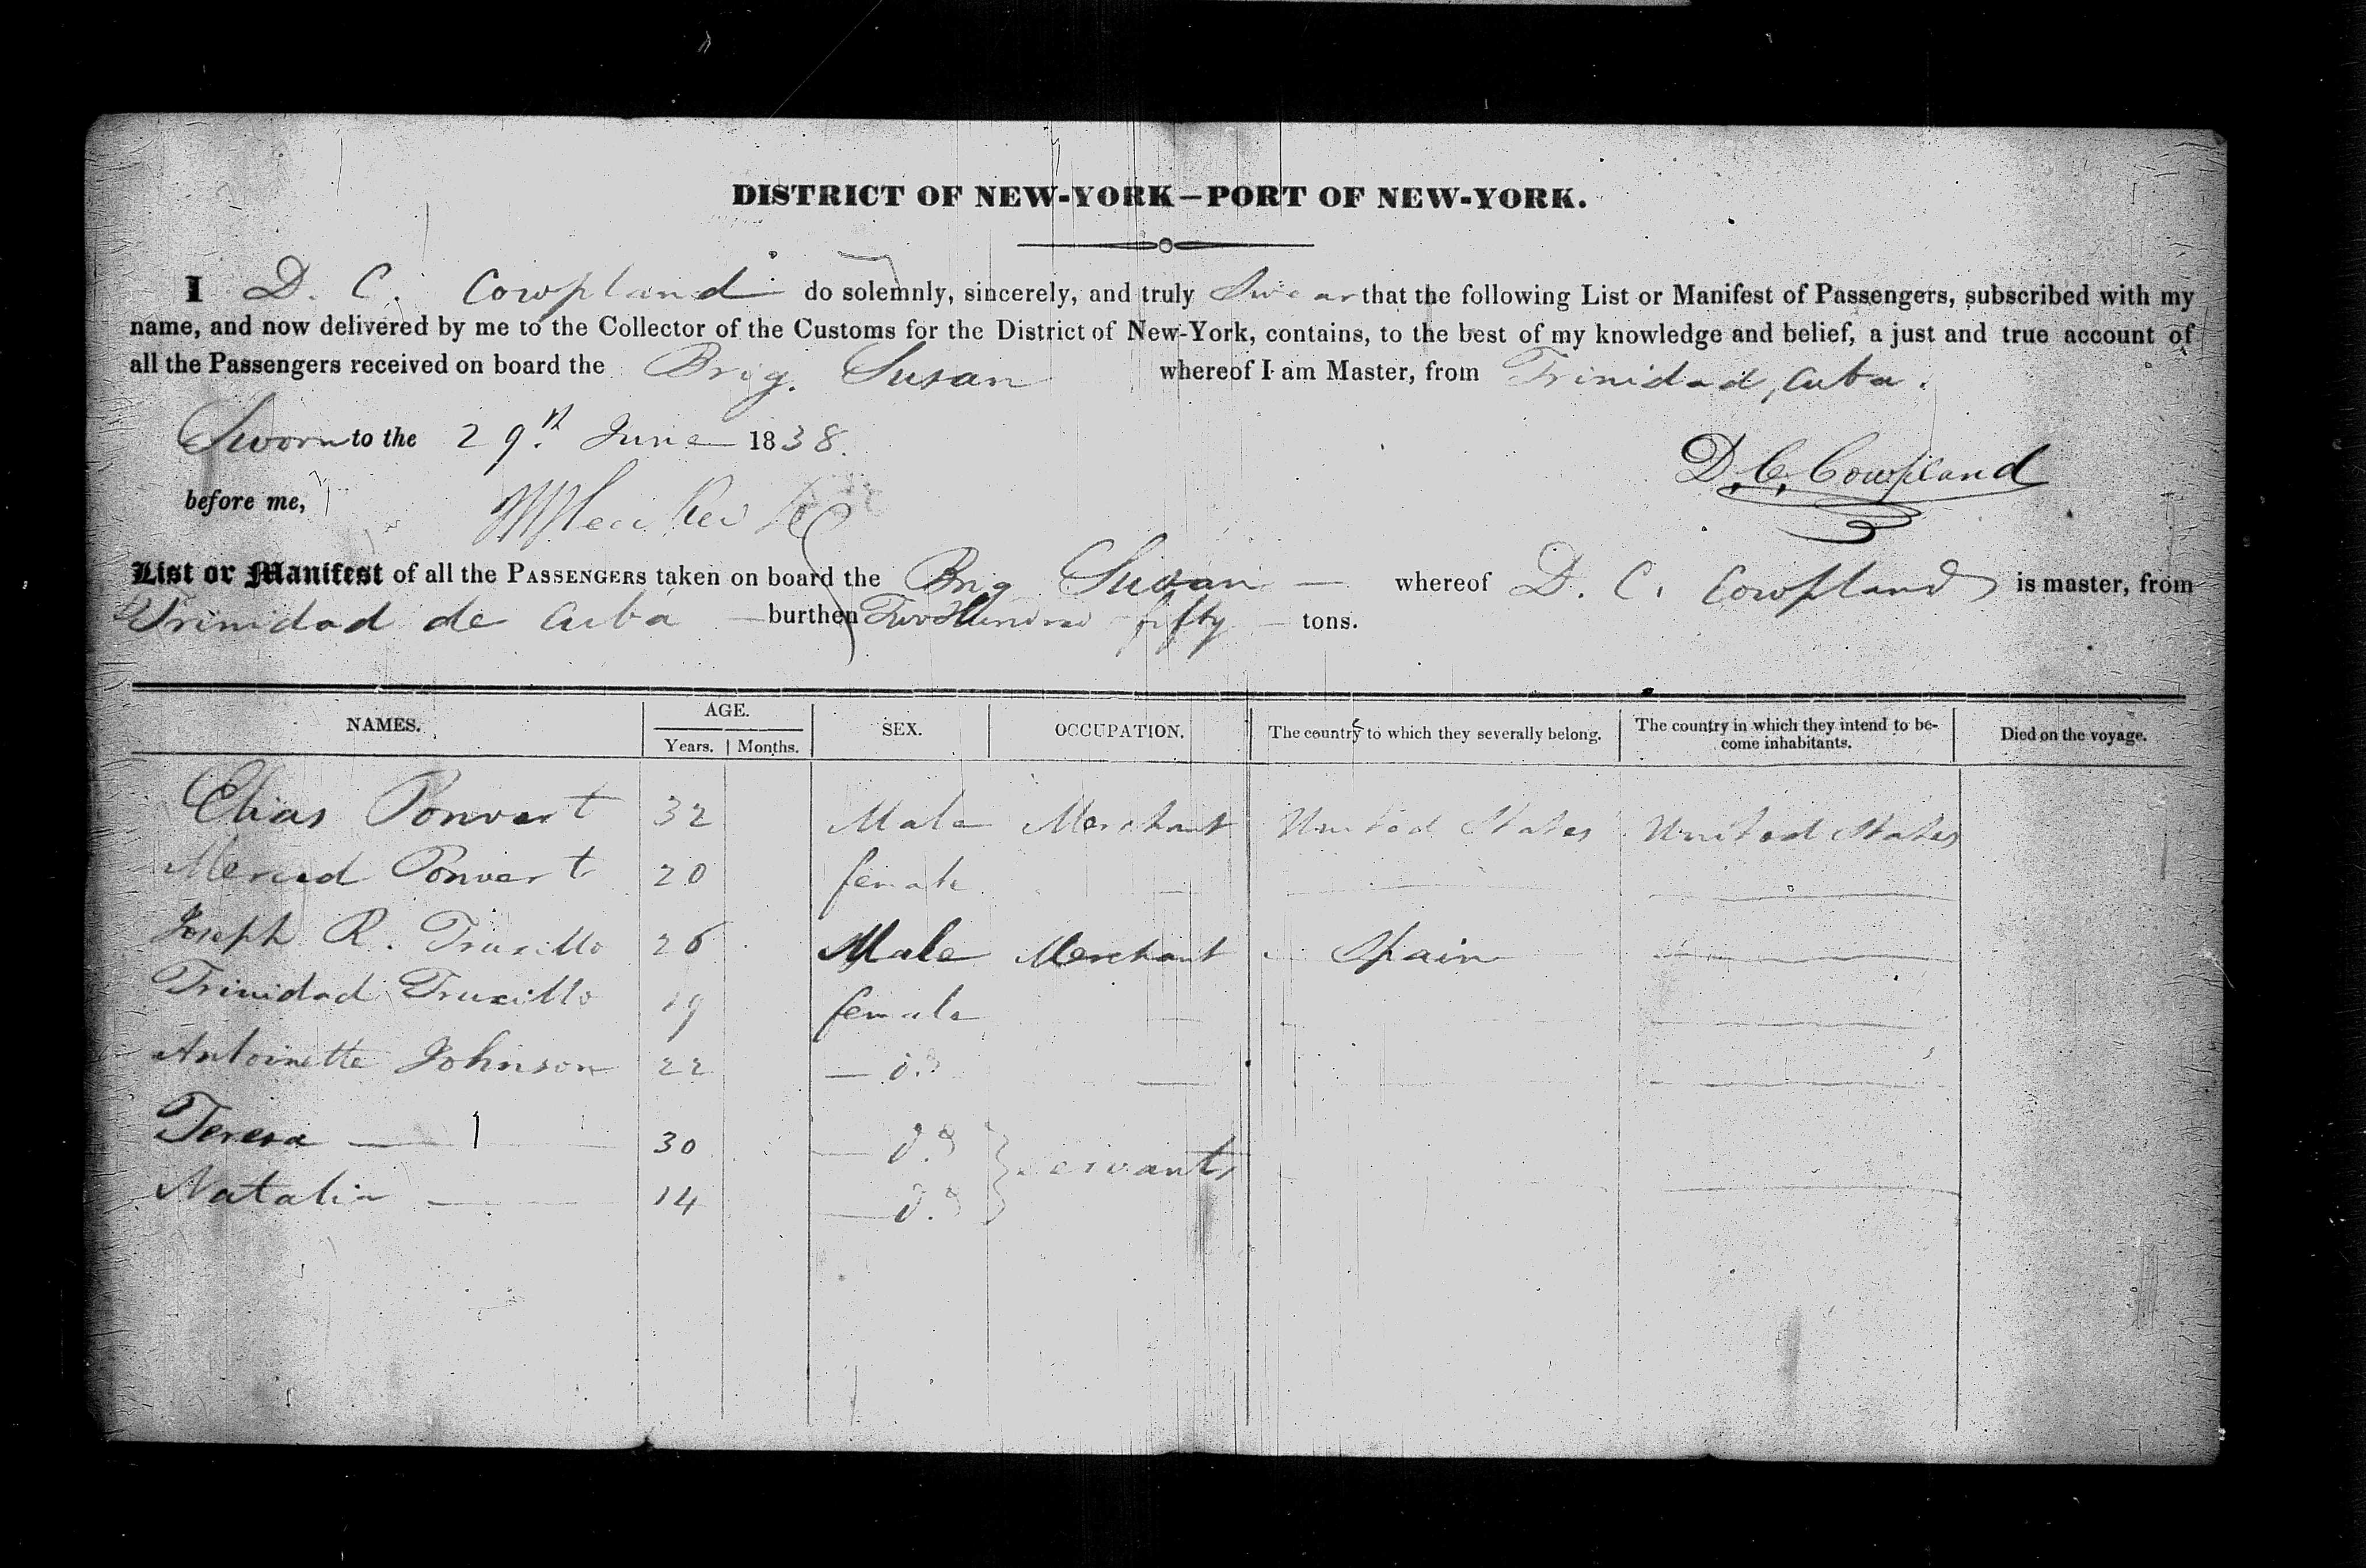 DISTRICT OF NEW-YORK—PORT OF NEW-YORK.
I D. C. Cowpland do solemnly, sincerely, and truly Swear that the following List or Manifest of Passengers, subscribed with my
name, and now delivered by me to the Collector of the Customs for the District of New-York, contains, to the best of my knowledge and belief, a just and true account of
all the Passengers received on board the Brig. Susan whereof I am Master, from Trinidad, Cuba.
Sworn to the 29th June 1838.
D. C. Cowpland
before me,
List or Manifest of all the PASSENGERS taken on board the Brig Susan — whereof D. C. Cowpland is master, from
Trinidad de Cuba — burthen Two Hundred fifty — tons.
NAMES. AGE. Years. Months. SEX. OCCUPATION. The country to which they severally belong. The country in which they intend to be-come inhabitants. Died on the voyage.
Elias Ponvert 32 Male Merchant United States United States
Merced Ponvert 20 female — — —
Joseph R. Truxillo 26 Male Merchant Spain —
Trinidad Truxillo 19 female — — —
Antoinette Johnson 22 — do — — —
Teresa — 30 — do } servants
Natalia — 14 — do — —